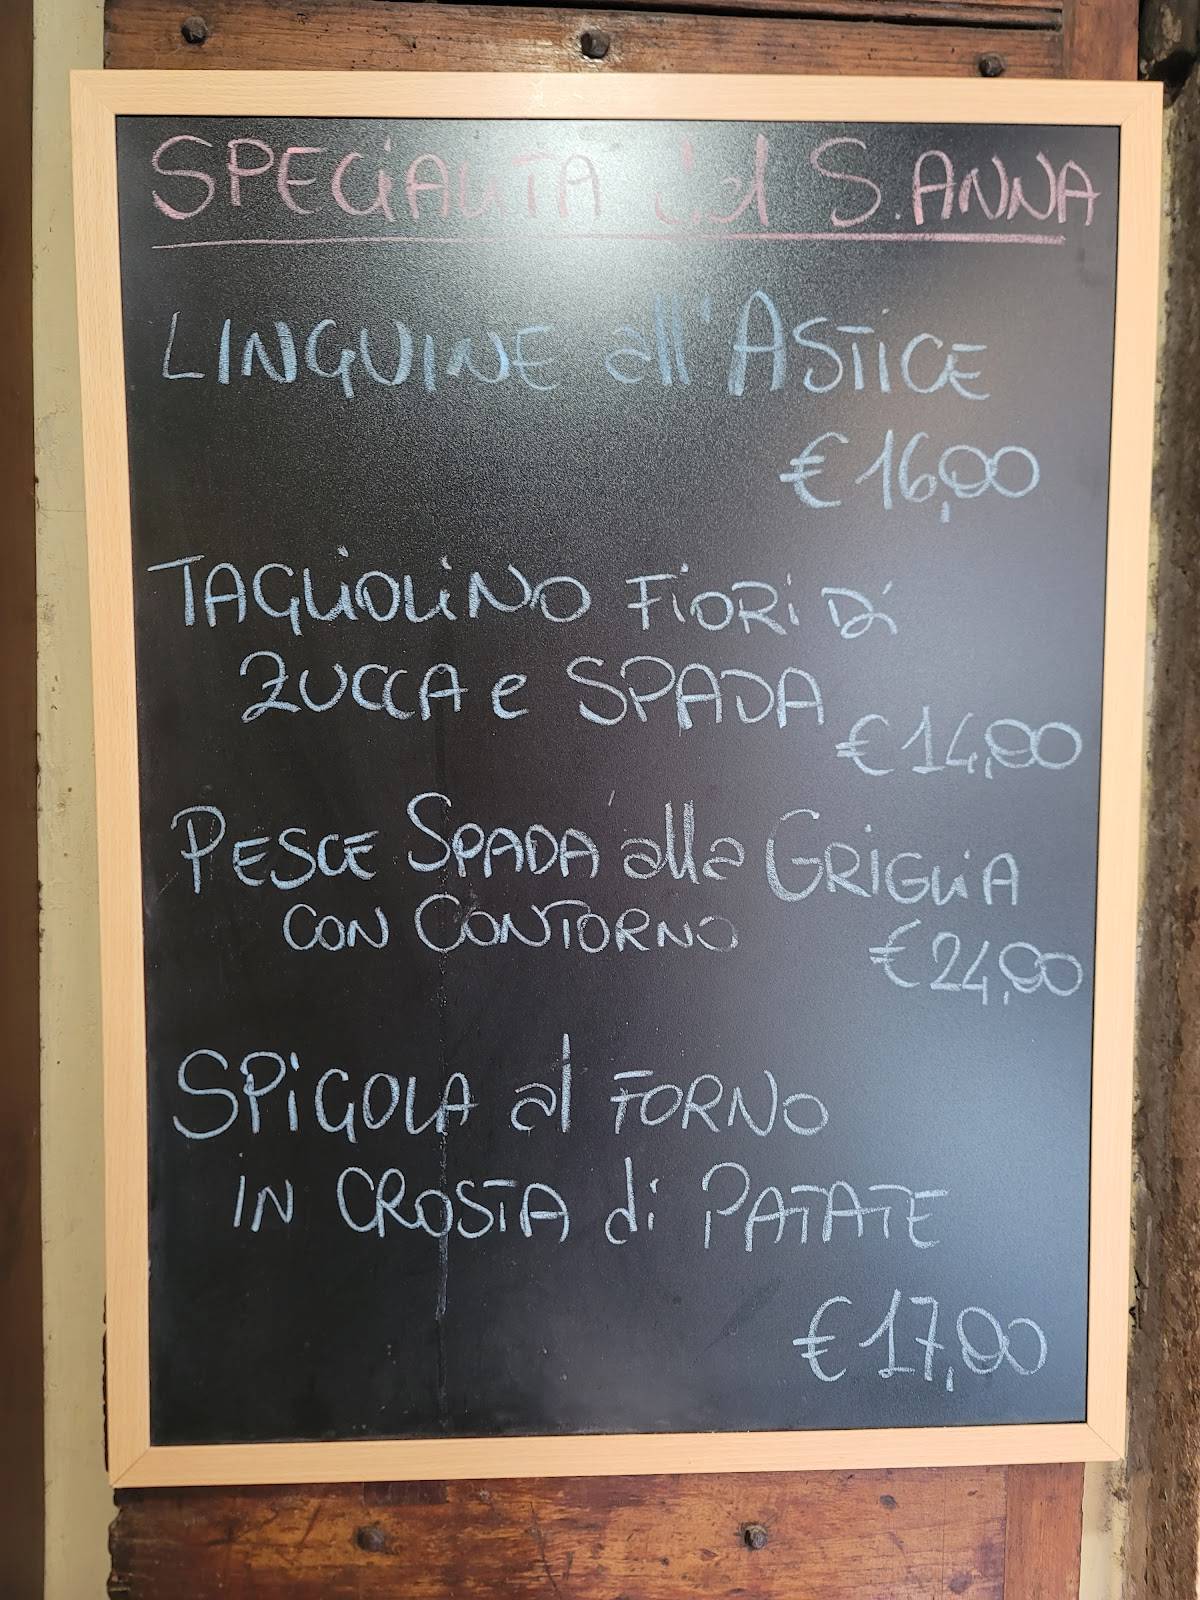 SPECIALITÀ del S. ANNA
LINGUINE all'ASTICE
€ 16,00
TAGLIOLINO FIORI Di
ZUCCA e SPADA
€ 14,00
PESCE SPADA alla GRIGLIA
CON CONTORNO
€ 24,00
SPIGOLA al FORNO
IN CROSTA di PATATE
€ 17,00